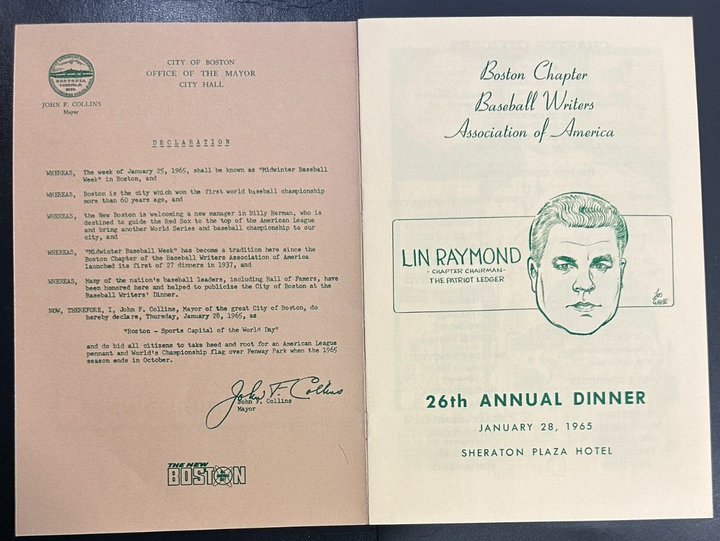 CITY OF BOSTON
OFFICE OF THE MAYOR
CITY HALL
BOSTONIA
JOHN F. COLLINS
Mayor
DECLARATION
WHEREAS, The week of January 25, 1965, shall be known as "Midwinter Baseball
Week" in Boston, and
WHEREAS, Boston is the city which won the first world baseball championship
more than 60 years ago, and
WHEREAS, the New Boston is welcoming a new manager in Billy Herman, who is
destined to guide the Red Sox to the top of the American League
and bring another World Series and baseball championship to our
city, and
WHEREAS, "Midwinter Baseball Week" has become a tradition here since the
Boston Chapter of the Baseball Writers Association of America
launched its first of 27 dinners in 1937, and
WHEREAS, Many of the nation's baseball leaders, including Hall of Famers, have
been honored here and helped to publicize the City of Boston at the
Baseball Writers' Dinner.
NOW, THEREFORE, I, John F. Collins, Mayor of the great City of Boston, do
hereby declare, Thursday, January 28, 1965, as
"Boston - Sports Capital of the World Day"
and do bid all citizens to take heed and root for an American League
pennant and World's Championship flag over Fenway Park when the 1965
season ends in October.
John F. Collins
John F. Collins
Mayor
THE NEW
BOSTON
Boston Chapter
Baseball Writers
Association of America
LIN RAYMOND
- CHAPTER CHAIRMAN -
THE PATRIOT LEDGER
26th ANNUAL DINNER
JANUARY 28, 1965
SHERATON PLAZA HOTEL